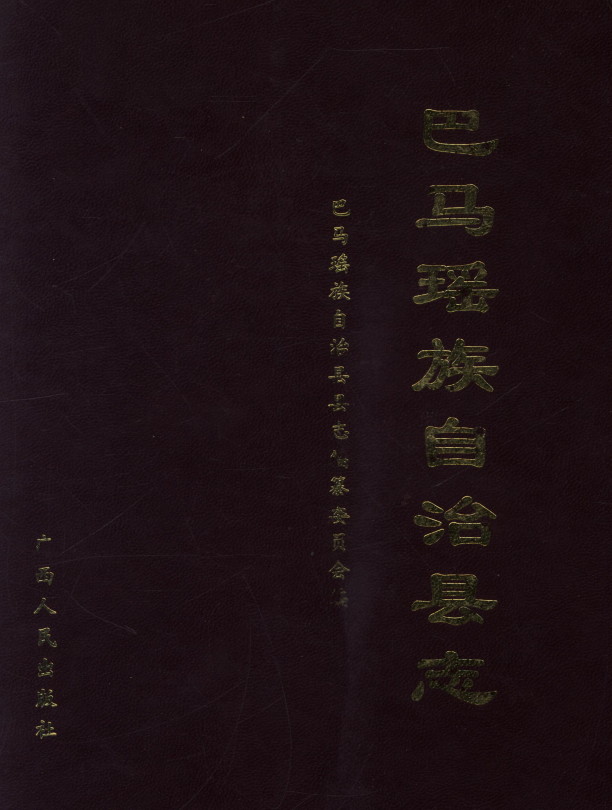 巴马瑶族自治县志
巴马瑶族自治县县志编纂委员会编
广西人民出版社